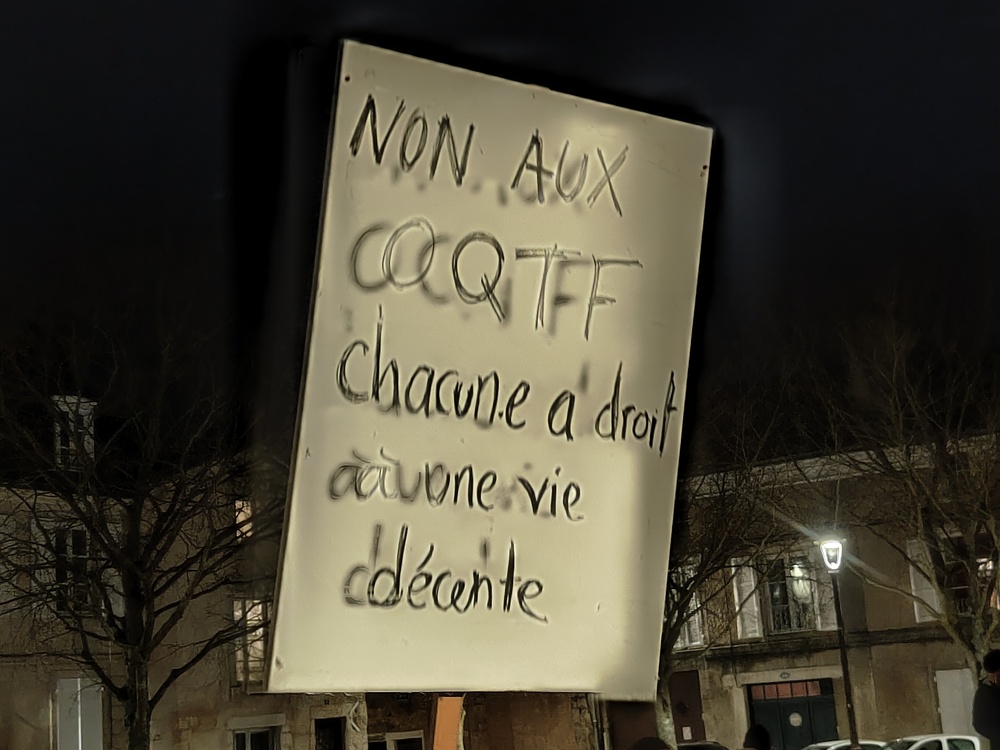 NON AUX
OQTF
chacun.e a droit
à une vie
décente